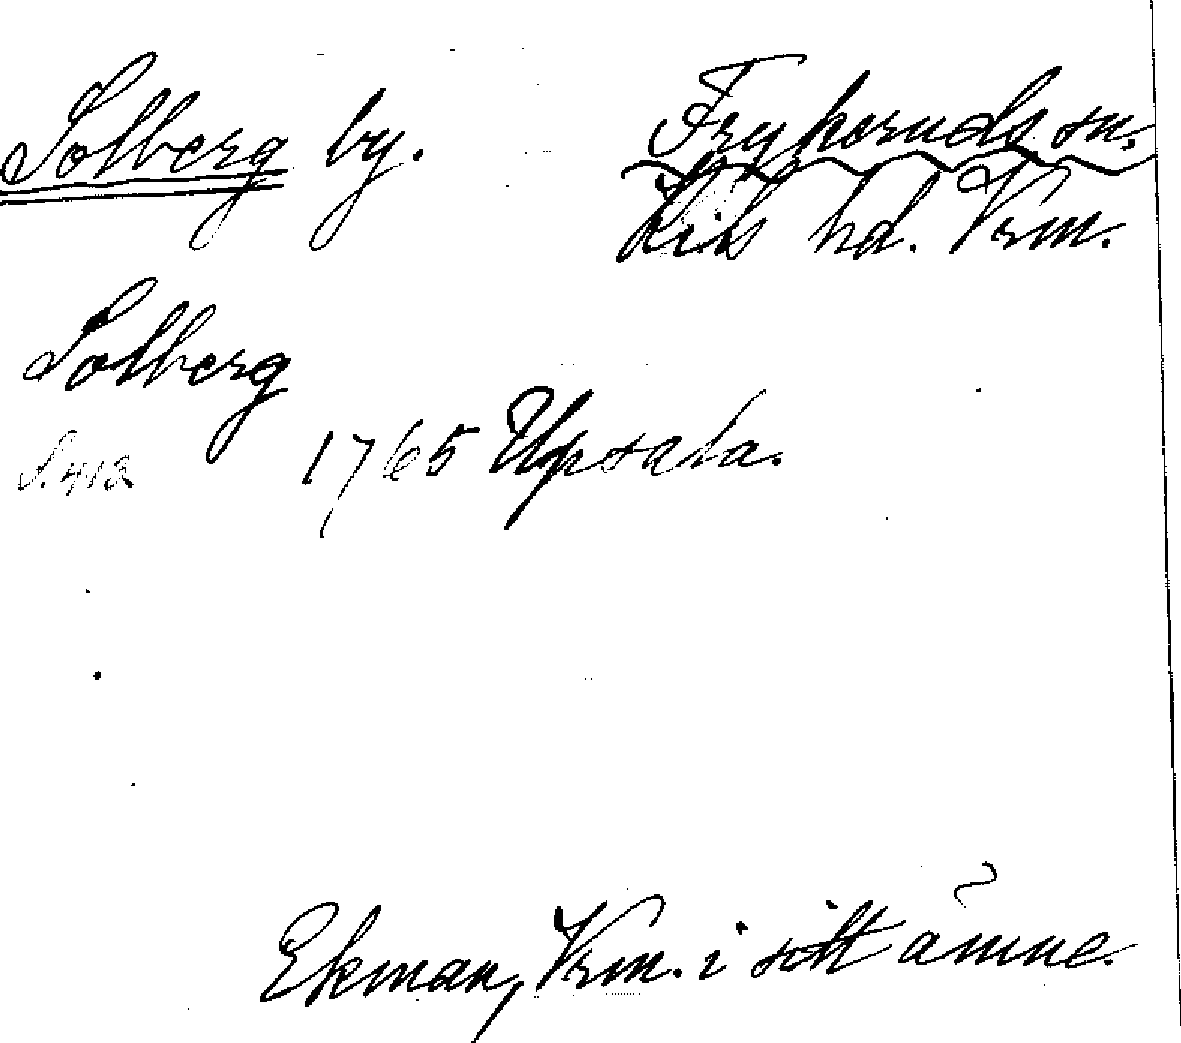 Solberg by. Frykeruds sn.
Kils hd. Vrm.
Solberg
S. 412 1765 Upsala.
Ekman, Vrm. i sitt ämne.